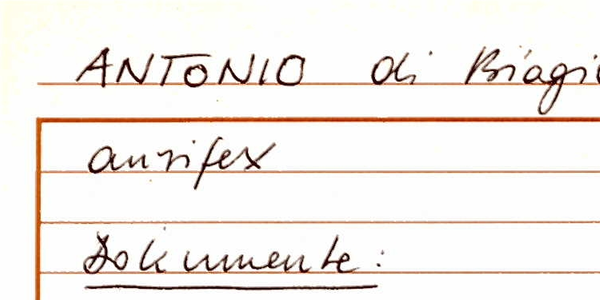 ANTONIO di Biagi
aurifex
Dokumente: